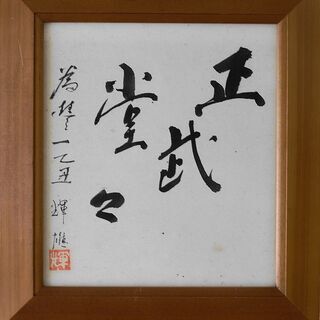 正武
堂々
為 一 乙丑 輝雄
輝